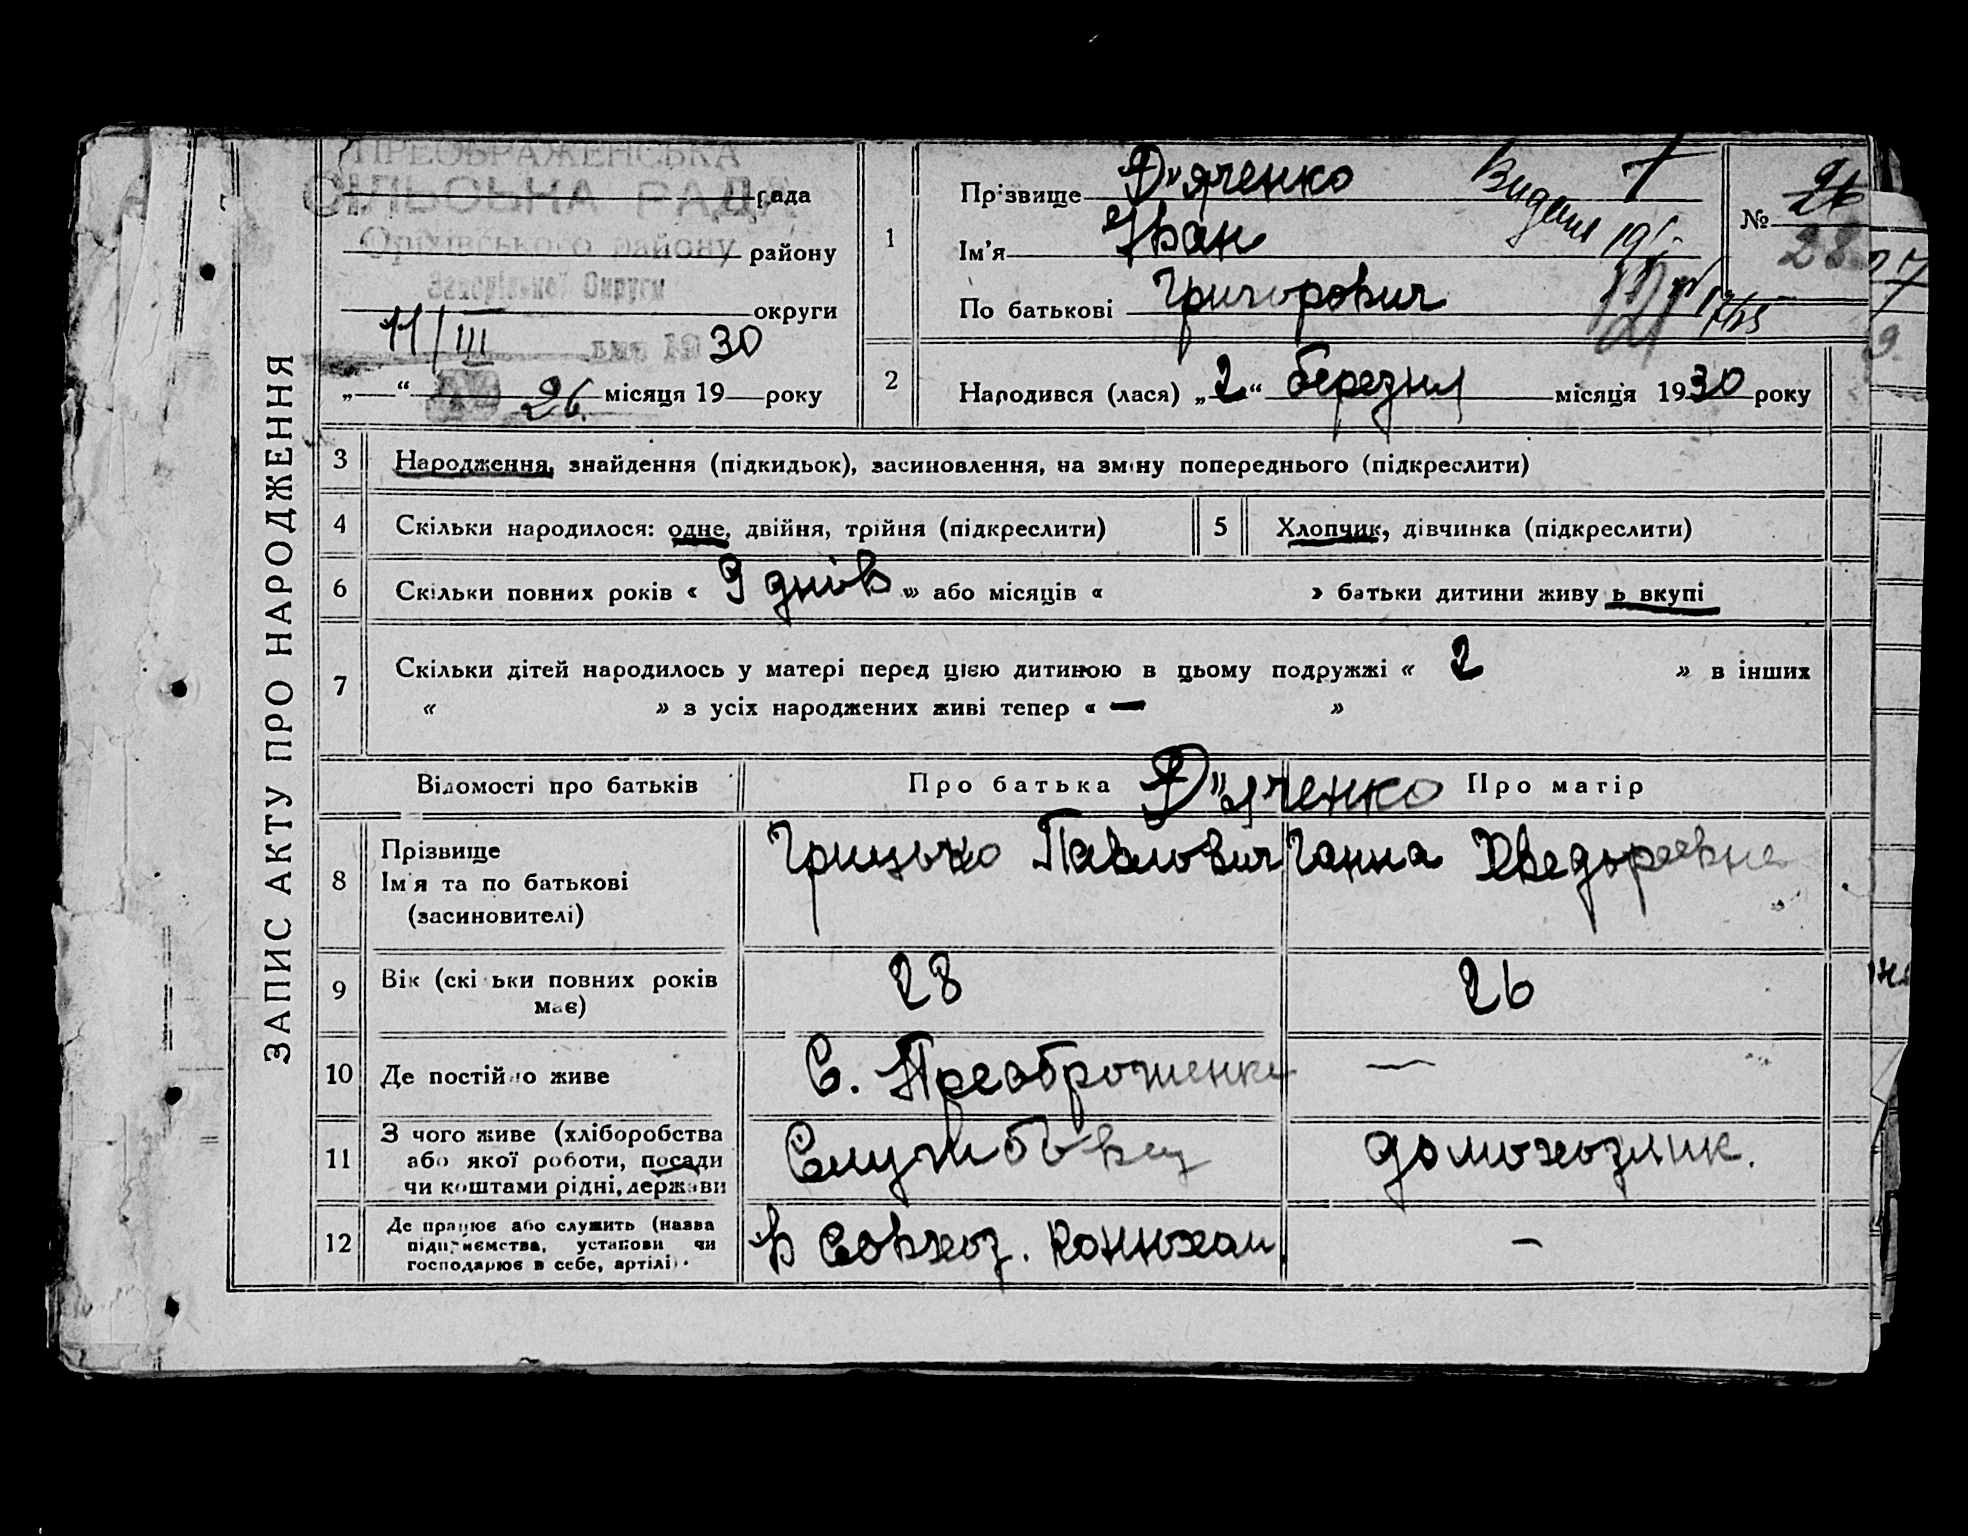 ЗАПИС АКТУ ПРО НАРОДЖЕННЯ
ПРЕОБРАЖЕНСЬКА
СІЛЬСЬКА РАДА
рада
Оріхівського району
району
Запорізької Округи
округи
11/III 1930
„—“ 26. місяця 19—року
1
Прізвище Д"яченко
Ім'я Іван
По батькові Григорович
Видане
№ 26
28
2
Народився (лася) „2“ березня місяця 1930 року
3 Народження, знайдення (підкидьок), засиновлення, на зміну попереднього (підкреслити)
4 Скільки народилося: одне, двійня, трійня (підкреслити)
5 Хлопчик, дівчинка (підкреслити)
6 Скільки повних років « 9 днів » або місяців « » батьки дитини живуть вкупі
7 Скільки дітей народилось у матері перед цією дитиною в цьому подружжі « 2 » в інших
« » з усіх народжених живі тепер « — »
Відомості про батьків
Про батька Д"яченко Про матір
8
Прізвище
Ім'я та по батькові
(засиновителі)
Грицько Павлович
Ганна Хведоревна
9
Вік (скільки повних років
має)
28
26
10 Де постійно живе
С. Преображенка
—
11
З чого живе (хліборобства
або якої роботи, посади
чи коштами рідні, держави
Службовец
домохозяик.
12
Де працює або служить (назва
підприємства, установи чи
господарює в себе, артілі).
в Совхоз. Конюхом
–